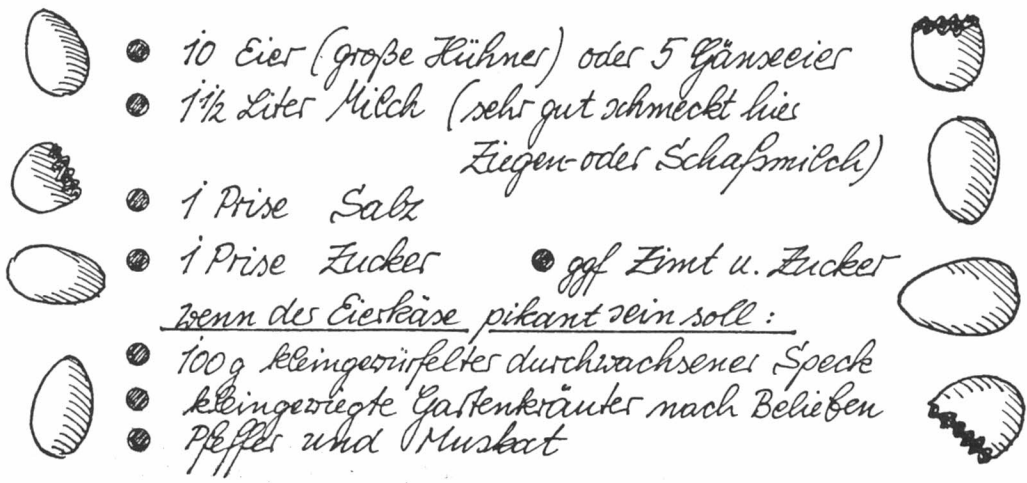 10 Eier (große Hühner) oder 5 Gänseeier
1 1/2 Liter Milch (sehr gut schmeckt hier
Ziegen- oder Schafsmilch)
1 Prise Salz
1 Prise Zucker
ggf Zimt u. Zucker
wenn der Eierkäse pikant sein soll:
100 g kleingewürfelter durchwachsener Speck
kleingewiegte Gartenkräuter nach Belieben
Pfeffer und Muskat